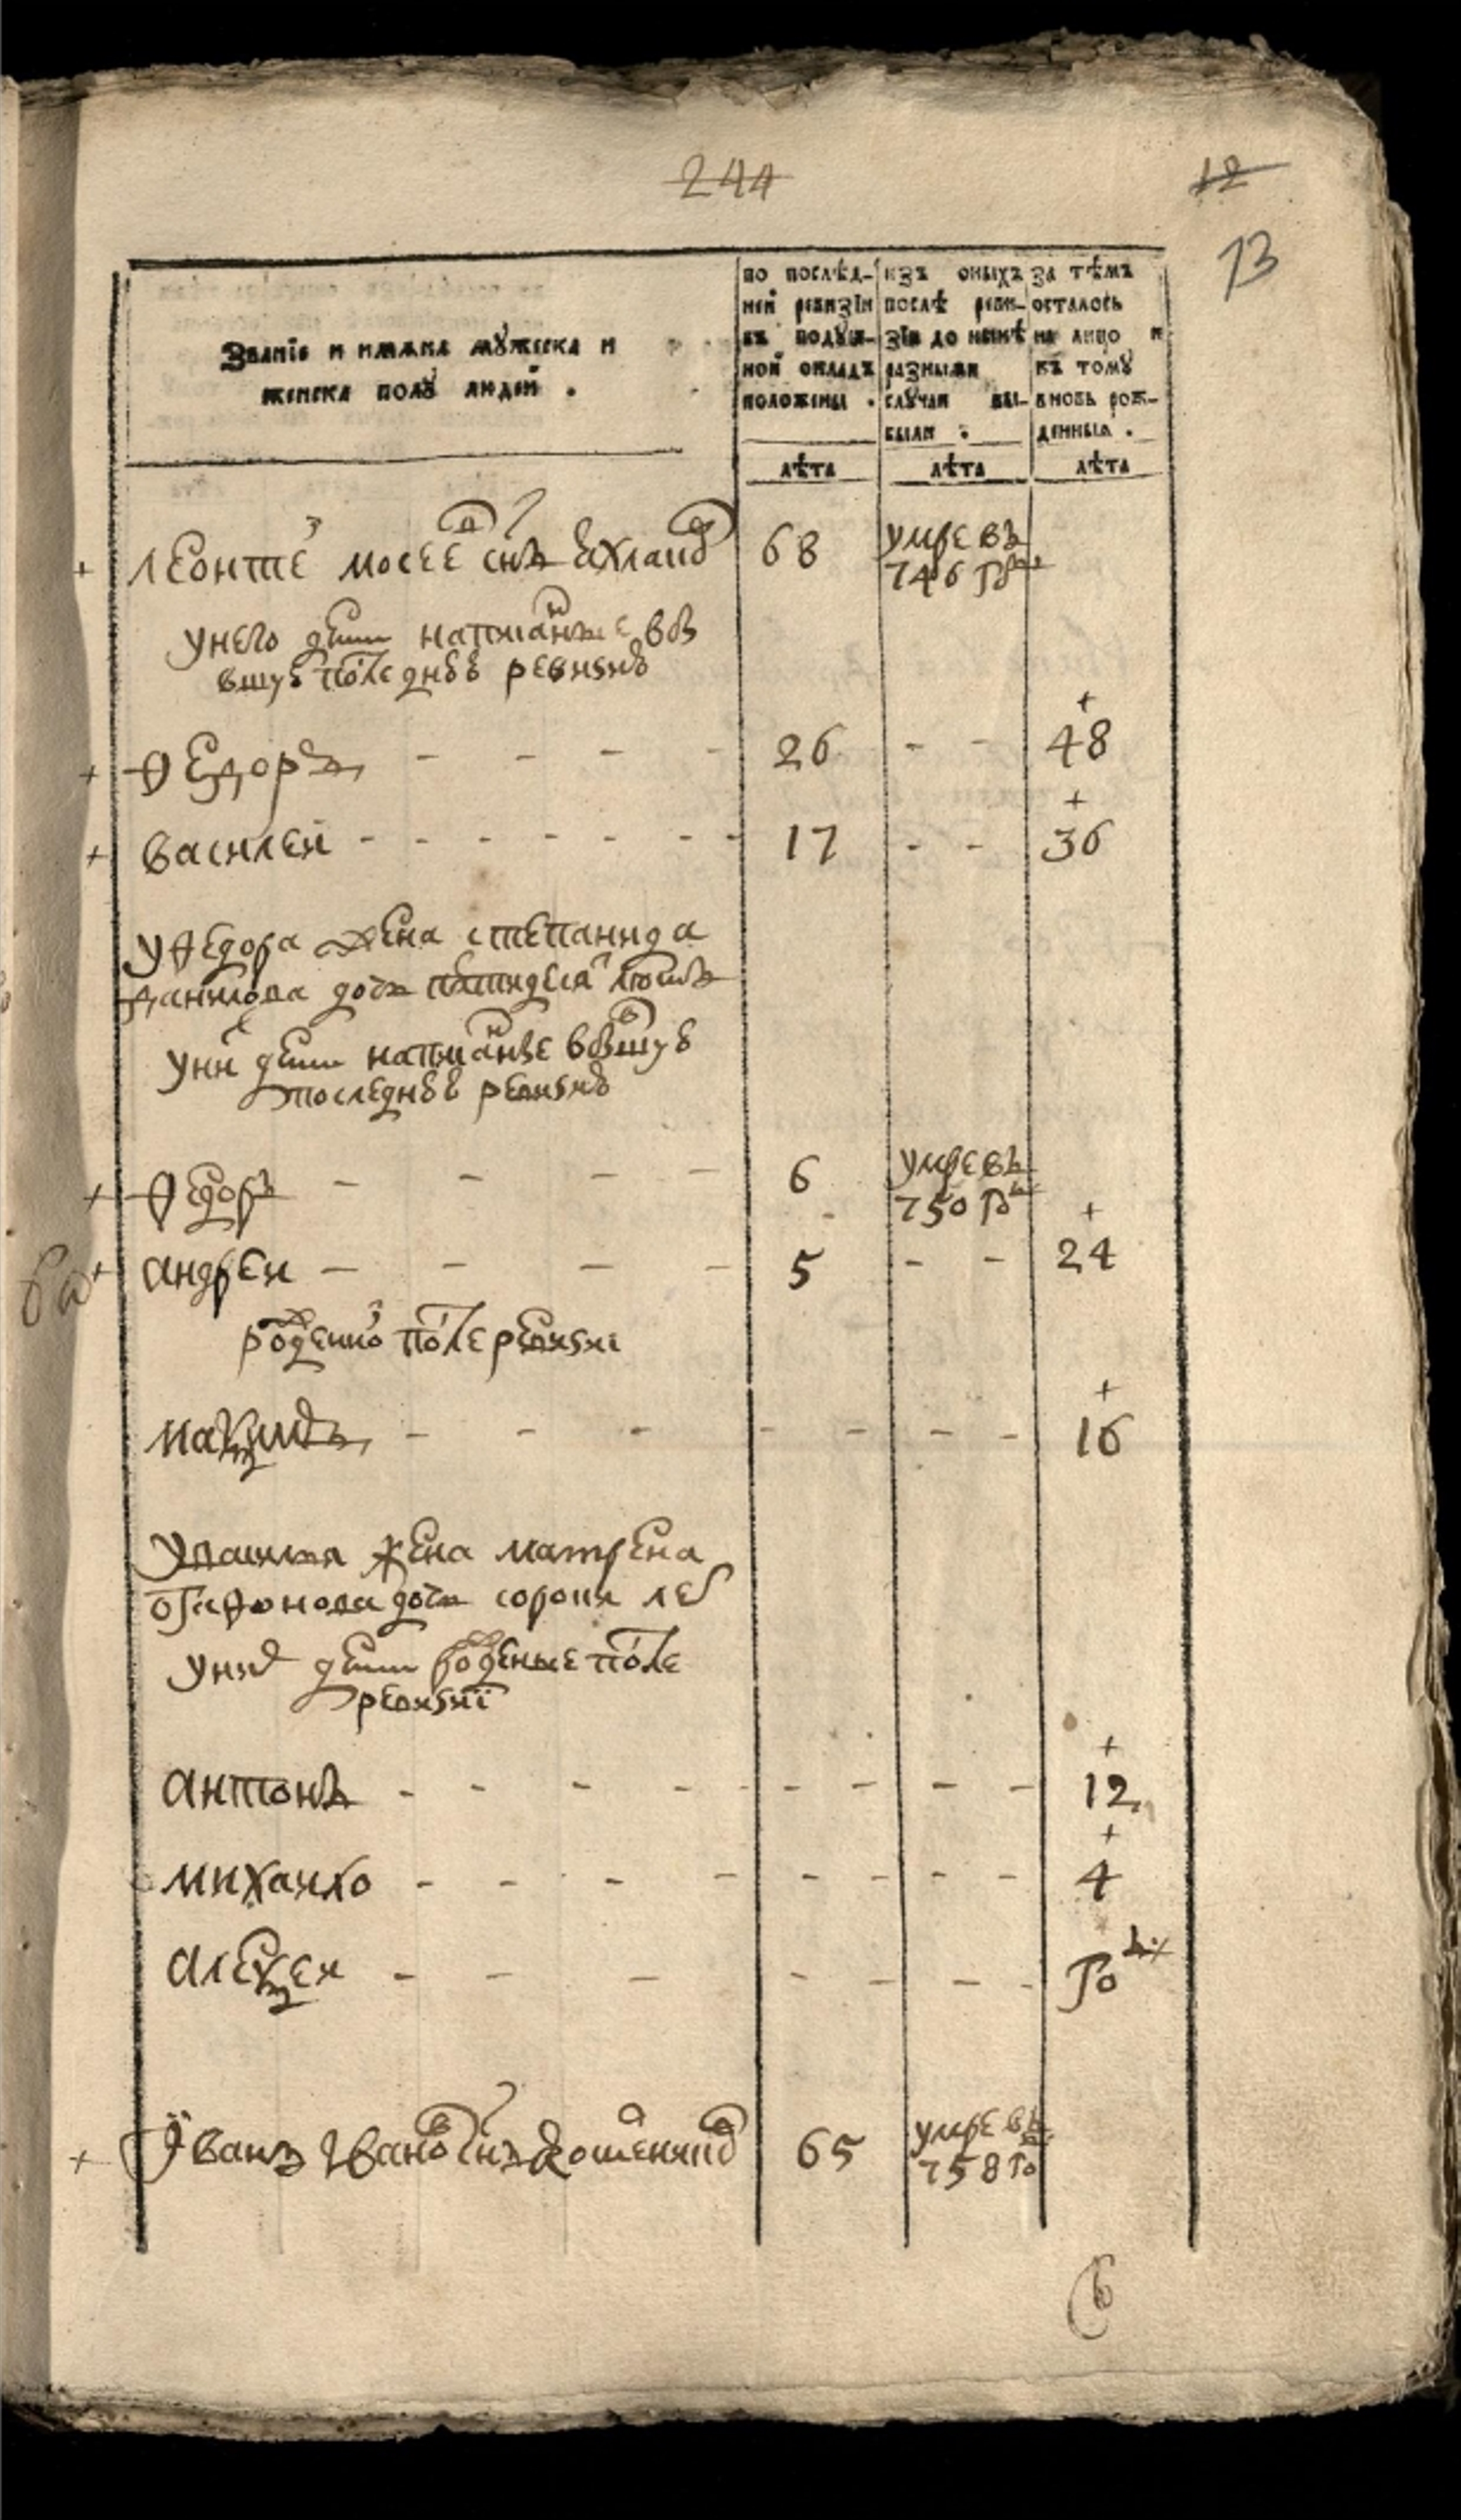 244
12
13
Званїе и имѧна мꙋжеска и
женска полꙋ людей .
по послѣд-
ней ревизїи
въ подꙋш-
ной окладъ
положены .
изъ оныхъ
послѣ реви-
зїи до нынѣ
разными
слꙋчаи вы-
были .
за тѣмъ
осталось
на лицо и
къ томꙋ
вновь рож-
денныѧ .
лѣта
лѣта
лѣта
+ леонтеи мосеев снъ 68 умре въ
746 го
у него дети написанные в
последнюю ревизию
+
+ ѳедоръ - - - - 26 - - 48
+
+ василей - - - - - - - 17 - - 36
у ѳедора жена степанида
данилова дочь петидесят летъ
у них дети написанные в
последнюю ревизию
+ ѳедоръ - - - - 6 умре въ
750 го
+
+ андреи - - - - 5 - - 24
рожденной после ревизиі
+
максимъ - - - - - - - 16
у василья жена матрена
дочь сорока лет
у них дети рожденые после
ревизиї
+
антонъ - - - - - - - - 12
+
михаило - - - - - - - - 4
алексеи - - - - - - - го
+ їванъ Иванов снъ 65 умре въ
758 го